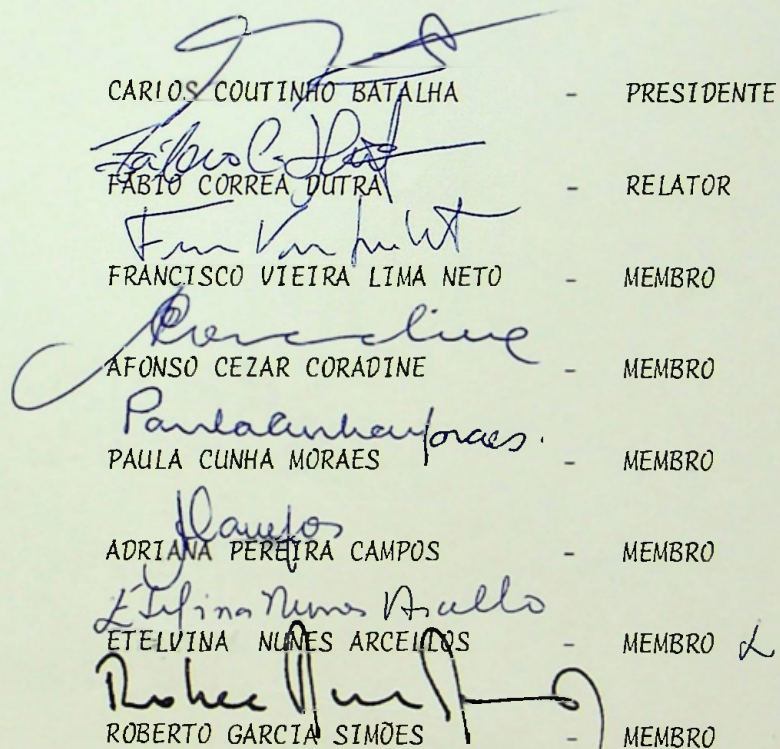 CARLOS COUTINHO BATALHA - PRESIDENTE
FÁBIO CORREA DUTRA - RELATOR
FRANCISCO VIEIRA LIMA NETO - MEMBRO
AFONSO CEZAR CORADINE - MEMBRO
Paula Cunha Moraes.
PAULA CUNHA MORAES - MEMBRO
ADRIANA PEREIRA CAMPOS - MEMBRO
ETELVINA NUNES ARCELLOS - MEMBRO
ROBERTO GARCIA SIMÕES - MEMBRO